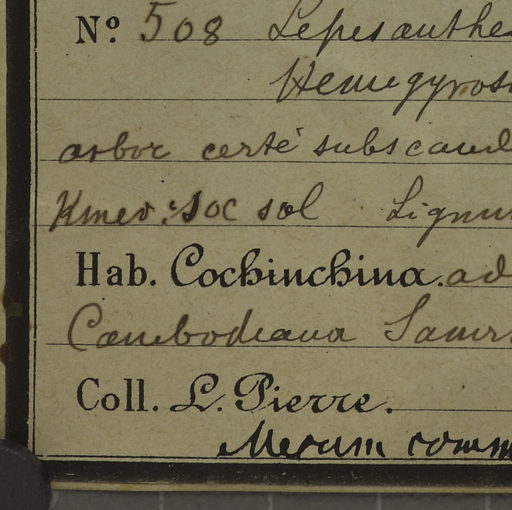 Nº 508 Lepisanthe
Hemigyros
arbor certé subscand
Kmer: Soc sol Lignu
Hab. Cochinchina. ad
Cambodiana Samr
Coll. L. Pierre.